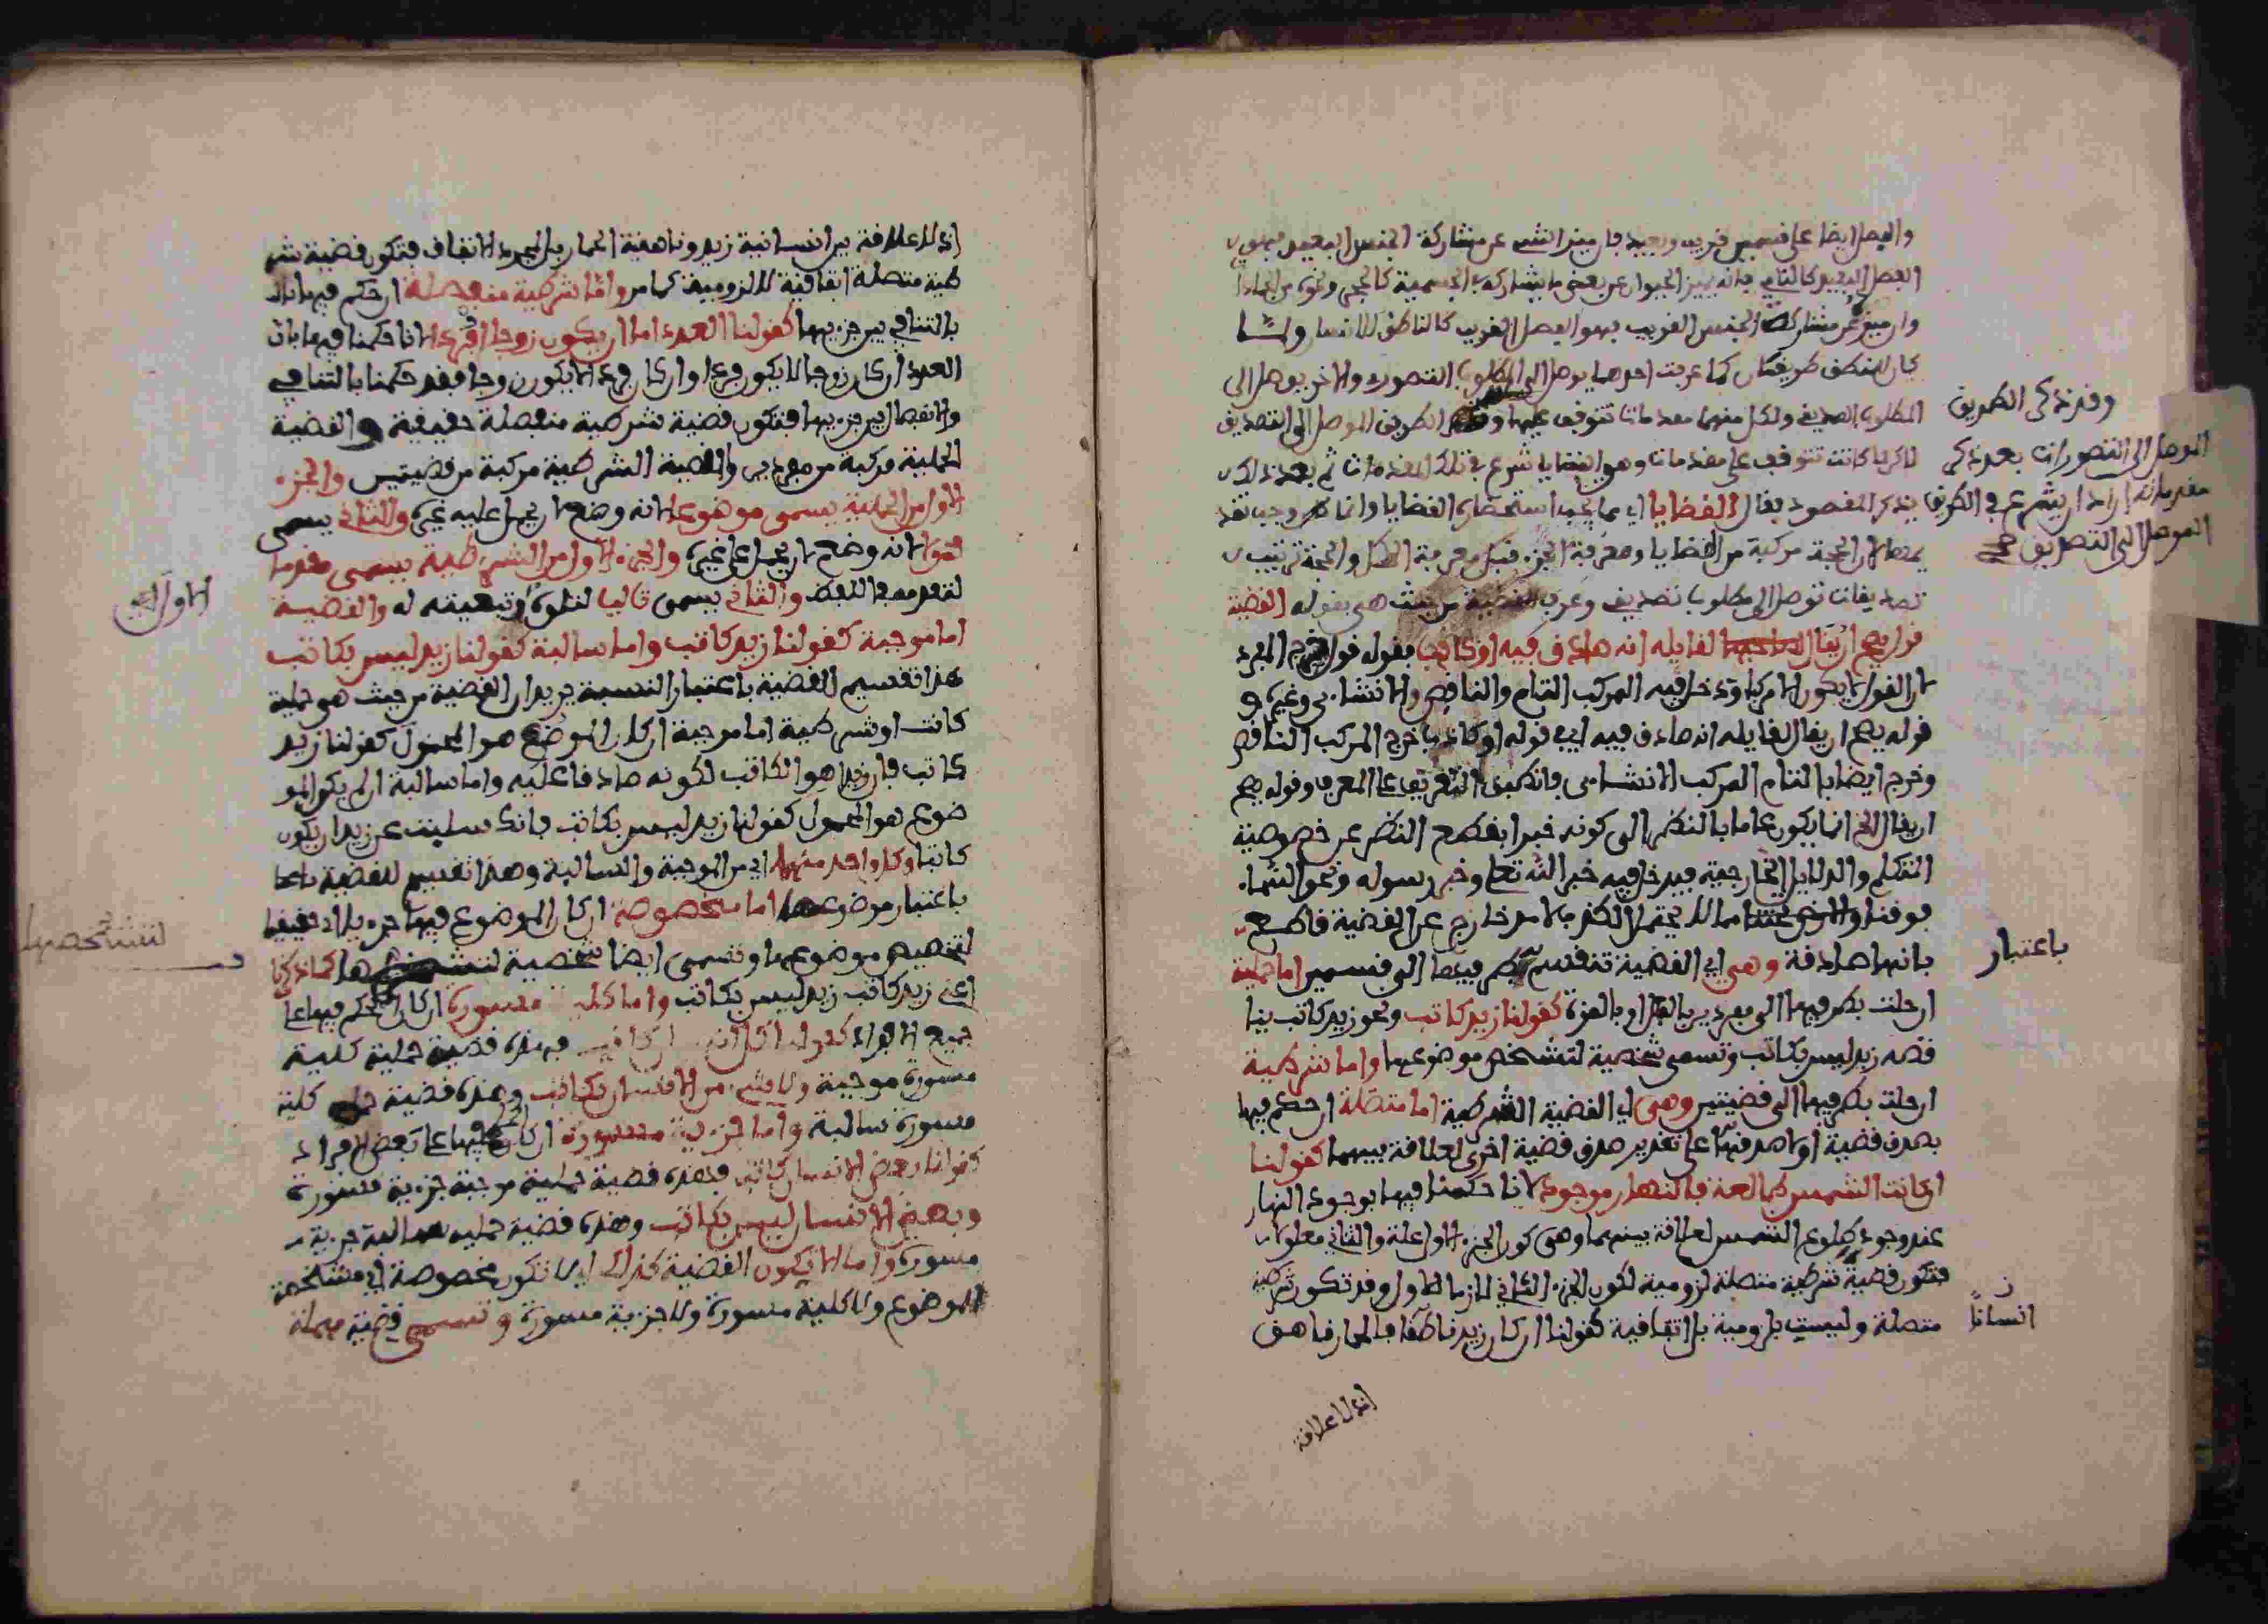 والفصل ايضا على قسمين قريب وبعيد فان ميز الشيء عن مشاركة الجنس البعيد فهو
الفصل البعيد كالنامي فانه يميز الحيوان عن بعض ما يشاركه في الجسمية كالحجر ونحوه من الجماد
وان ميزه عن مشاركة الجنس القريب فهو الفصل القريب كالناطق للانسان ولما
كان للمنطق طريقتان كما عرفت احدهما يوصل الى المطلوب التصوري والاخر يوصل الى
المطلوب التصديقي ولكل منهما مقدمات تتوقف عليها الطريق الموصل الى التصديق
وقد ذكر الطريق
الموصل الى التصورات بعد ذكر
مقدماته اراد ان يشرع في الطريق
الموصل الى التصديق صح
لما كانت تتوقف على مقدمات وهو القضايا شرع في تلك المقدمات ثم بعد ذلك
يذكر المقصود فقال القضايا اي مما يجب استحضاره القضايا وانما وجب تقد
يمها لان الحجة مركبة من القضايا ومعرفة الجزء قبل معرفة الكل والحجة ترتيب
تصديقات توصل الى مطلوب تصديقي وعرف القضية من حيث هي بقوله القضية
قول يصح ان يقال لقايله انه صادق فيه او كاذب فقوله قول خرج المفرد
لان القول لا يكون الا مركبا ودخل فيه المركب التام والناقص والانشاءي وغيره و
قوله يصح ان يقال لقايله انه صادق فيه اي في قوله او كاذب خرج المركب الناقص
وخرج ايضا بالتام المركب الانشاءي فانطبق التعريف على المعرف وقوله يصح
ان يقال الخ انما يكون عاما بالنظر الى كونه خبرا بقطع النظر عن خصوصية
المتكلم والدلايل الخارجية فيدخل فيه خبر الله تعلى وخبر رسوله ونحو السماء
فوقنا مما لا يحتمل الكذب لامر خارج عن القضية قاطع
باعتبار
بانها صادقة وهي اي القضية تنقسم طرفيها الى قسمين اما حملية
ان حلت بطرفيها الى مفردين بالفعل او بالقوة كقولنا زيد كاتب ونحو زيد كاتب ينا
قضه زيد ليس بكاتب وتسمى شخصية لتشخص موضوعها واما شرطية
ان حلت بطرفيها الى قضيتين وهي اي القضية الشرطية اما متصلة ان حكم فيها
بصدق قضية او لا صدقها على تقدير صدق قضية اخرى لعلاقة بينهما كقولنا
ان كانت الشمس طالعة فالنهار موجود لانا حكمنا فيها بوجود النهار
عند وجود طلوع الشمس لعلاقة بينهما وهي كون الجزء الاول علة والثاني معلولا
فتكون قضية شرطية متصلة لزومية لكون الجزء الثاني لازما للاول وقد تكون شرطية
انسانا
متصلة وليست بلزومية بل اتفاقية كقولنا ان كان زيد ناطقا فالحمار ناهق
اذ لا علاقة
اذ لا علاقة بين انسانية زيد وناهقة الحمار بل لمجرد الاتفاق فتكون قضية شر
طية متصلة اتفاقية لا لزومية كما مر واما شرطية منفصلة ان حكم فيها بال
بالتنافي بين جزييها كقولنا العدد اما ان يكون زوجا او فردا لانا حكمنا فيها بان
العدد ان كان زوجا لا يكون فردا وان كان فردا لا يكون زوجا فقد حكمنا بالتنافي
والانفصال بين جزييها فتكون قضية شرطية منفصلة حقيقية والقضية
الحملية مركبة من مفردين والقضية الشرطية مركبة من قضيتين والجزء
الاول من الحملية يسمى موضوعا لانه وضع لان يحمل عليه غيره والثاني يسمى
محمولا لانه وضع لان يحمل على غيره والجزء الاول من الشرطية يسمى مقدما
لتقدمه في اللفظ والثاني يسمى تاليا لتلوه او تبعيته له والقضية
الاول اي
اما موجبة كقولنا زيد كاتب واما سالبة كقولنا زيد ليس بكاتب
هذا تقسيم للقضية باعتبار النسبة يريد ان القضية من حيث هو حملية
كانت او شرطية اما موجبة ان كان الموضع هو المحمول كقولنا زيد
كاتب فان زيدا هو الكاتب لكونه صادقا عليه واما سالبة ان لم يكن المو
ضوع هو المحمول كقولنا زيد ليس بكاتب فانك سلبت عن زيد ان يكون
كاتبا وكل واحد منهما اي من الموجبة والسالبة وهذا تقسيم للقضية
باعتبار موضوعها اما مخصوصة ان كان الموضوع فيها جزييا حقيقيا
لتشخصها
لتخصيص موضوعها وتسمى ايضا شخصية كما ذكرنا
اعني زيد كاتب زيد ليس بكاتب واما كلية مسورة ان كان الحكم فيها على
جميع الافراد كقولنا كل انسان كاتب فهذه قضية حملية كلية
مسورة موجبة ولا شيء من الانسان بكاتب وهذه قضية كلية
مسورة سالبة واما جزيية مسورة ان كان الحكم فيها على بعض الافراد
كقولنا بعض الانسان كاتب فهذه قضية حملية موجبة جزيية مسورة
وبعض الانسان ليس بكاتب وهذه قضية حملية سالبة جزيية
مسورة واما لا تكون القضية كذلك اي لا تكون مخصوصة اي مشخصة
الموضوع ولا كلية مسورة ولا جزيية مسورة وتسمى قضية مهملة